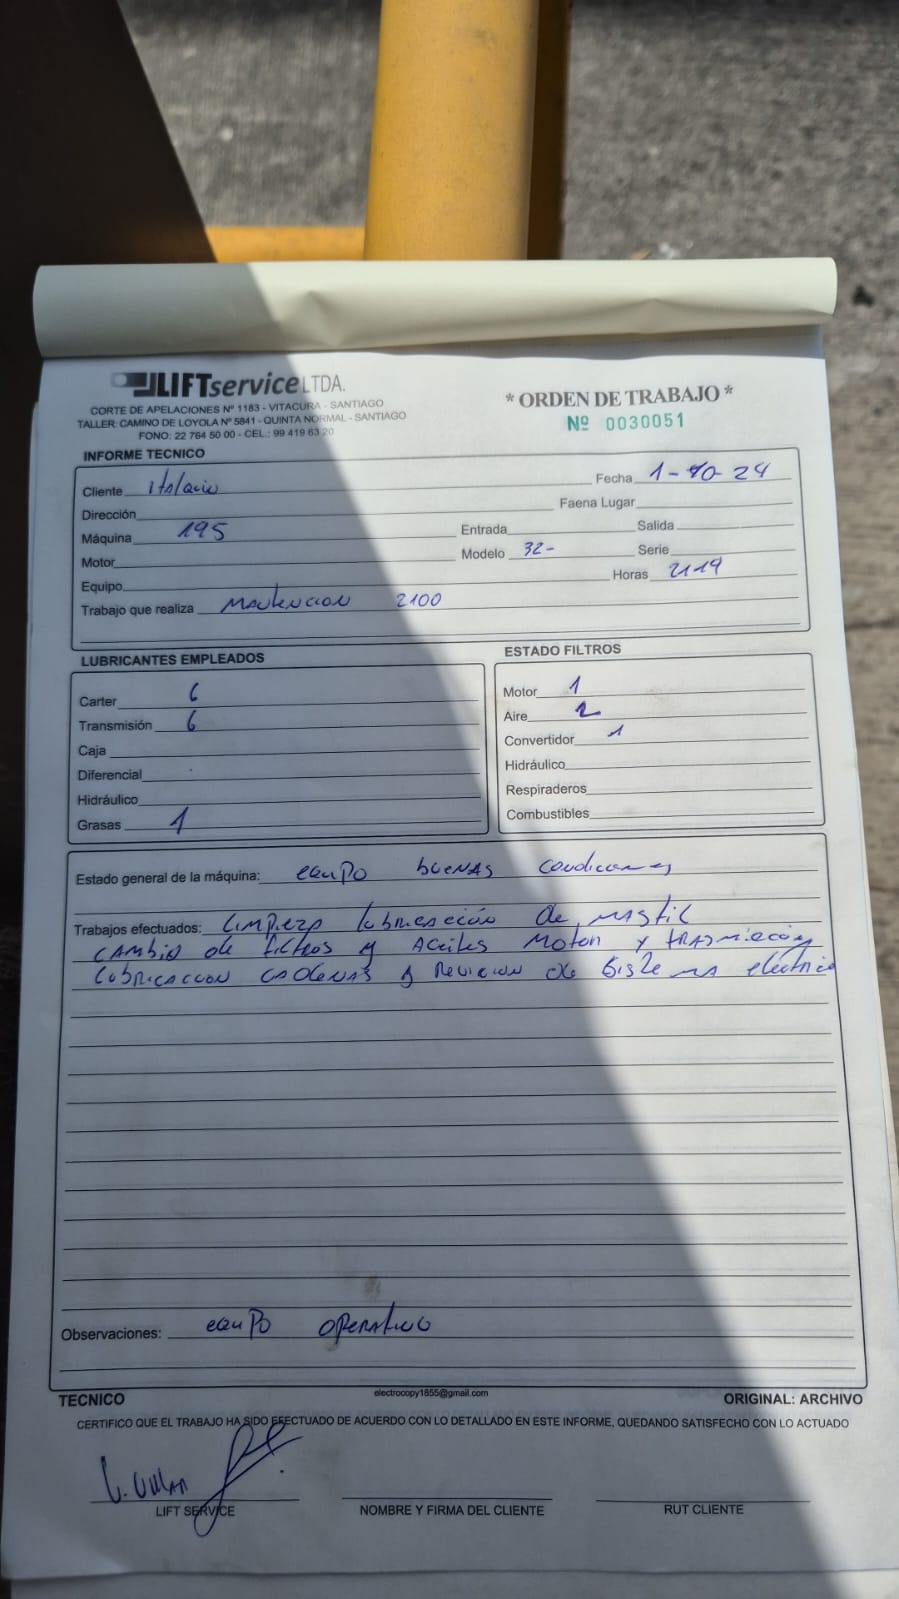 LIFTserviceLTDA.
CORTE DE APELACIONES Nº 1183 - VITACURA - SANTIAGO
TALLER: CAMINO DE LOYOLA Nº 5841 - QUINTA NORMAL - SANTIAGO
FONO: 22 764 50 00 - CEL.: 99 419 63 20
* ORDEN DE TRABAJO *
Nº 0030051
INFORME TECNICO
Cliente Fecha 1-10-24
Dirección Faena Lugar
Máquina 195 Entrada Salida
Motor Modelo 32- Serie
Equipo Horas 2119
Trabajo que realiza Mantencion 2100
LUBRICANTES EMPLEADOS
Carter 6
Transmisión 6
Caja
Diferencial
Hidráulico
Grasas 1
ESTADO FILTROS
Motor 1
Aire 2
Convertidor 1
Hidráulico
Respiraderos
Combustibles
Estado general de la máquina: equipo buenas condiciones
Trabajos efectuados: Limpieza lubricación de mastil
cambio de filtros y Aceites Motor y trasmición
lubricacion cadenas y revicion de sistema electrico
Observaciones: equipo operativo
TECNICO
electrocopy1855@gmail.com
ORIGINAL: ARCHIVO
CERTIFICO QUE EL TRABAJO HA SIDO EFECTUADO DE ACUERDO CON LO DETALLADO EN ESTE INFORME, QUEDANDO SATISFECHO CON LO ACTUADO
LIFT SERVICE
NOMBRE Y FIRMA DEL CLIENTE
RUT CLIENTE